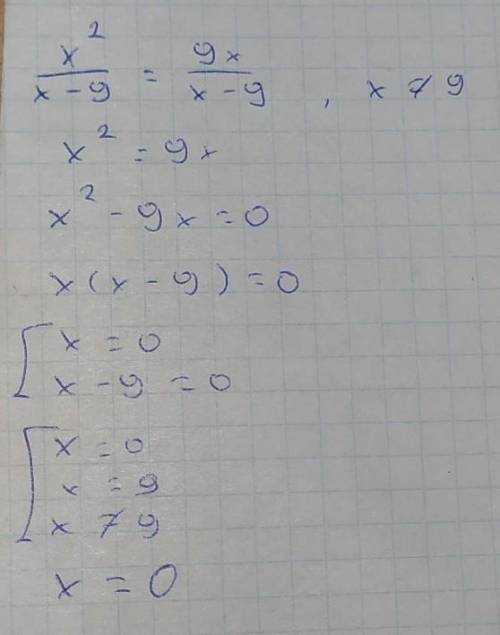 x²/(x - 9) = 9x/(x - 9) , x ≠ 9
x² = 9x
x² - 9x = 0
x(x - 9) = 0
[ x = 0
x - 9 = 0
[ x = 0
x = 9
x ≠ 9
x = 0